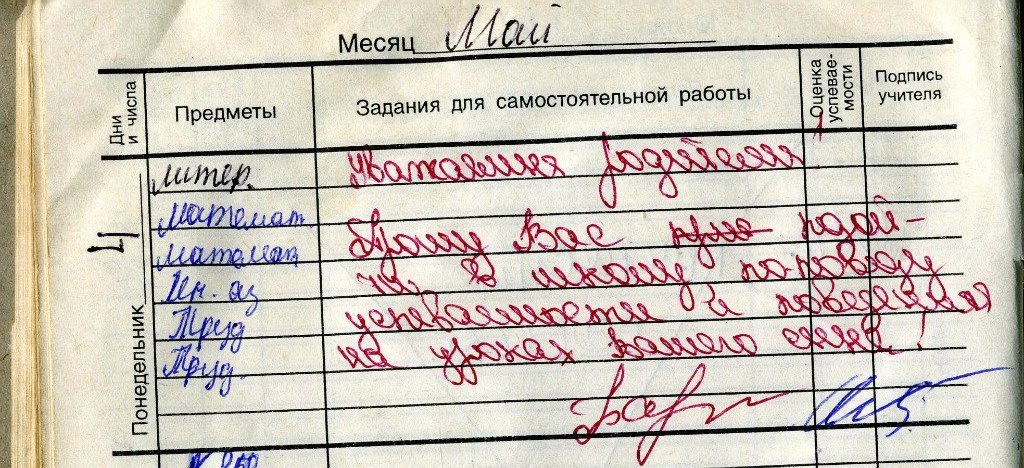 Месяц Май
Дни и числа
Предметы
Задания для самостоятельной работы
Оценка успевае-мости
Подпись учителя
4
Понедельник
литер.
Математ.
Математ
Ин. яз
Труд
Труд.
Уважаемия родители!
Прошу Вас при подой-
ти в школу по поводу
успеваемости и поведения
на уроках вашего сына!